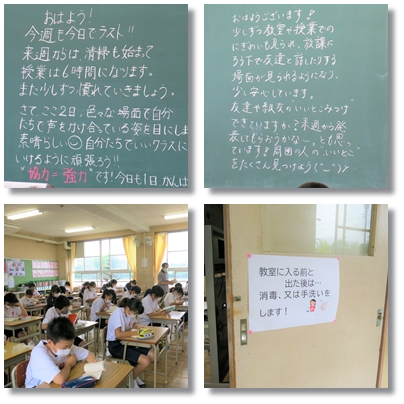 おはよう！
今週も今日でラスト!!
来週からは、清掃も始まって
授業は6時間になります。
また少しずつ慣れていきましょう。
さて、ここ2日、色々な場面で自分
たちで声をかけ合っている姿を目にしま
素晴らしい 自分たちでいいクラスに
いけるように頑張ろう!!
"協力=強力"です!今日も1日
おはようございます!
少しずつ教室や授業での
にぎわいも見られ、放課に
ろう下で友達と話したりする
場面が見られるようになり、
少し安心しています。
友達や級友の"いいとこみつけ"
できていますか?来週から発
表してもらおうかな…とも思っ
ています?周囲の人の"いいとこ"
をたくさん見つけよう
教室に入る前と
出た後は…
消毒、又は手洗いを
します！